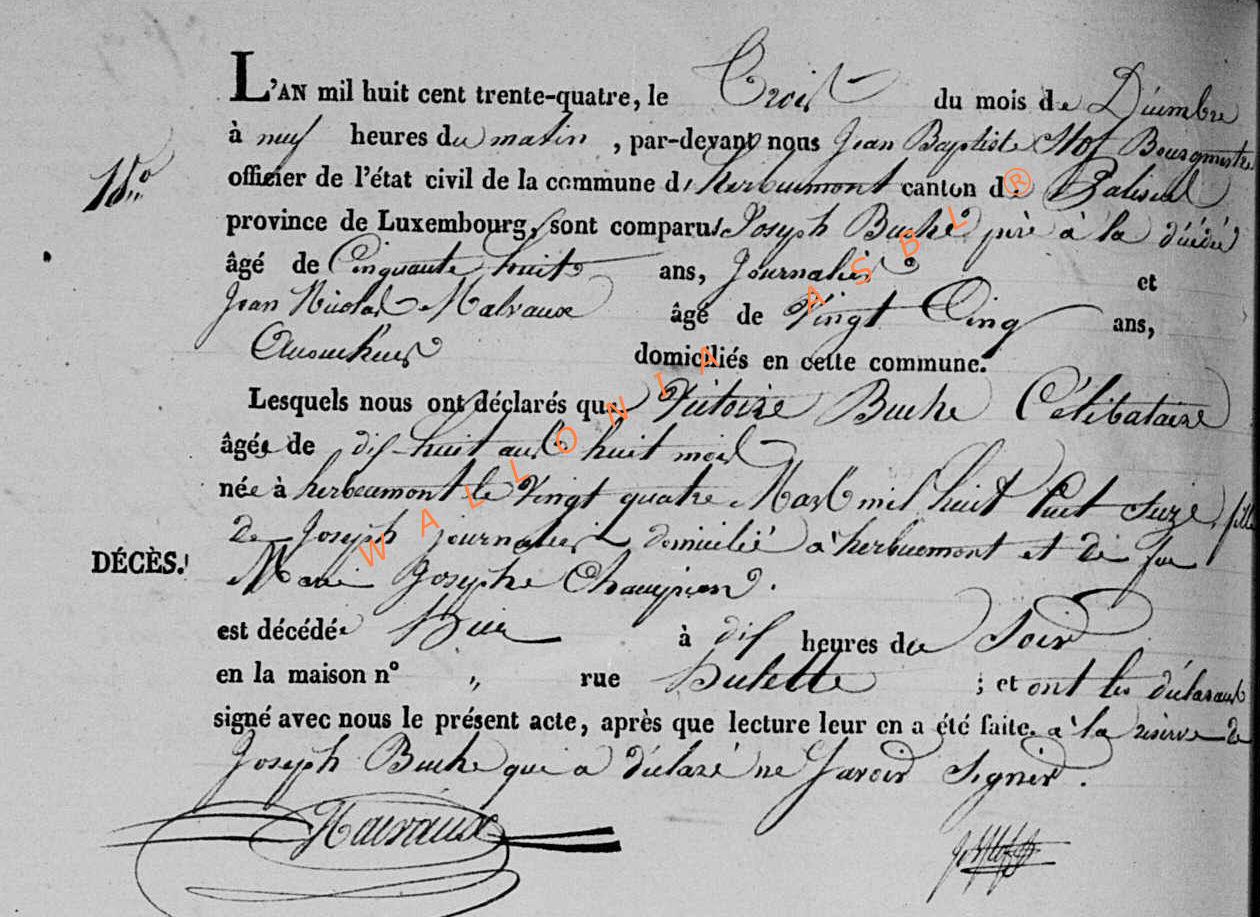 L'AN mil huit cent trente-quatre, le Trois du mois de Décembre
à neuf heures du matin, par-devant nous Jean Baptiste Bourgmestre
N°
officier de l'état civil de la commune d'herbeumont canton de Paliseul
province de Luxembourg, sont comparus Joseph Buche père à la décédée
âgé de Cinquante huit ans, Journalier et
Jean Nicolas Malvaux âgé de Vingt Cinq ans,
domiciliés en cette commune.
Lesquels nous ont déclarés que Victoire Buche Célibataire
âgée de dix-huit ans huit mois
née à herbeumont le Vingt quatre Mars mil huit Cent Seize, fille
de Joseph journalier domicilié à herbeumont et de feu
DÉCÈS.
Marie Josephe Champion.
est décédée hier à dix heures du Soir
en la maison n° „ rue hulette ; et ont les déclarants
signé avec nous le présent acte, après que lecture leur en a été faite. à la réserve de
Joseph Buche qui a déclaré ne Savoir Signer.
Malvaux
WALLONIA ASBL ®